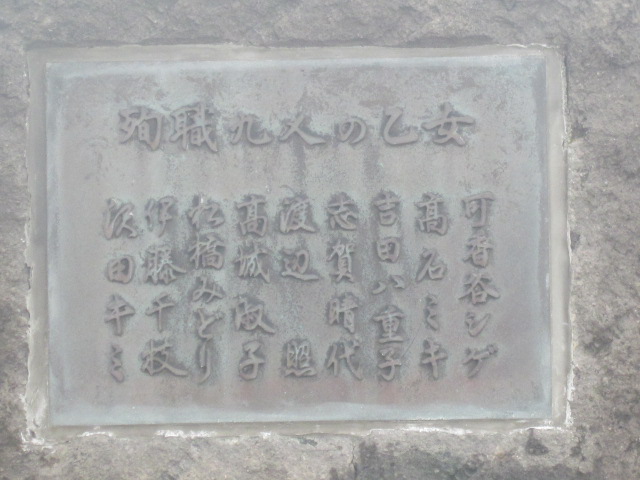 殉職九人の乙女
可香谷シゲ
高石ミキ
吉田八重子
志賀晴代
渡辺 照
高城淑子
松橋みどり
伊藤千枝
沢田キミ